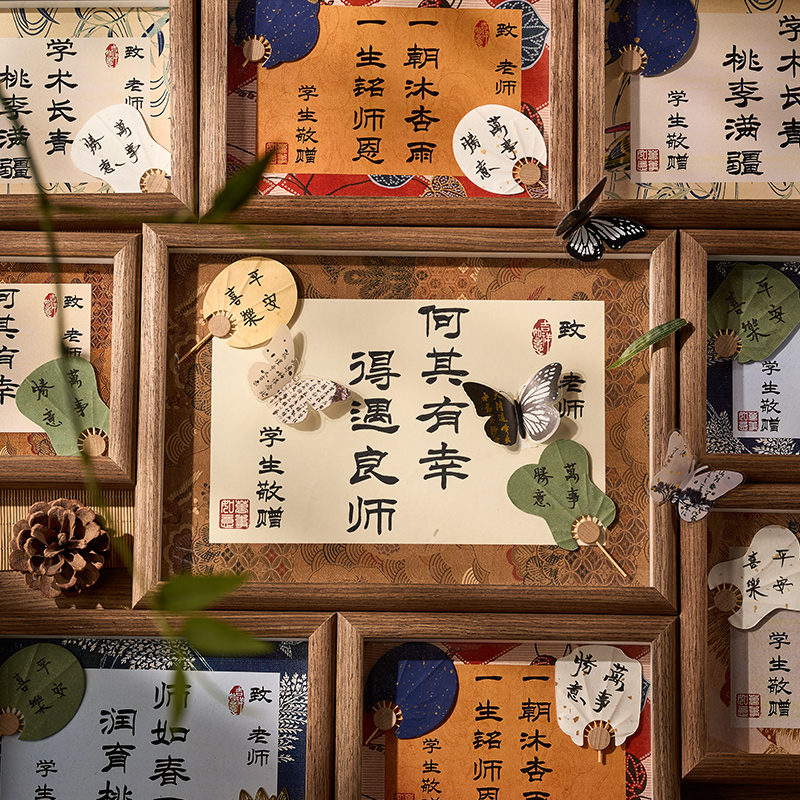 致 老师
学术长青
桃李满疆
萬事
勝意
致 老师
一朝沐杏雨
一生铭师恩
学生敬赠
萬事
勝意
学术长青
桃李满疆
学生敬赠
致 老师
何其有幸
萬事
勝意
致 老师
何其有幸
得遇良师
学生敬赠
平安
喜樂
萬事
勝意
平安
喜樂
学生敬赠
平安
喜樂
学生敬赠
致 老师
师如春
润育桃
学生
平安
喜樂
一朝沐杏雨
一生铭师恩
学生敬赠
萬事
勝意